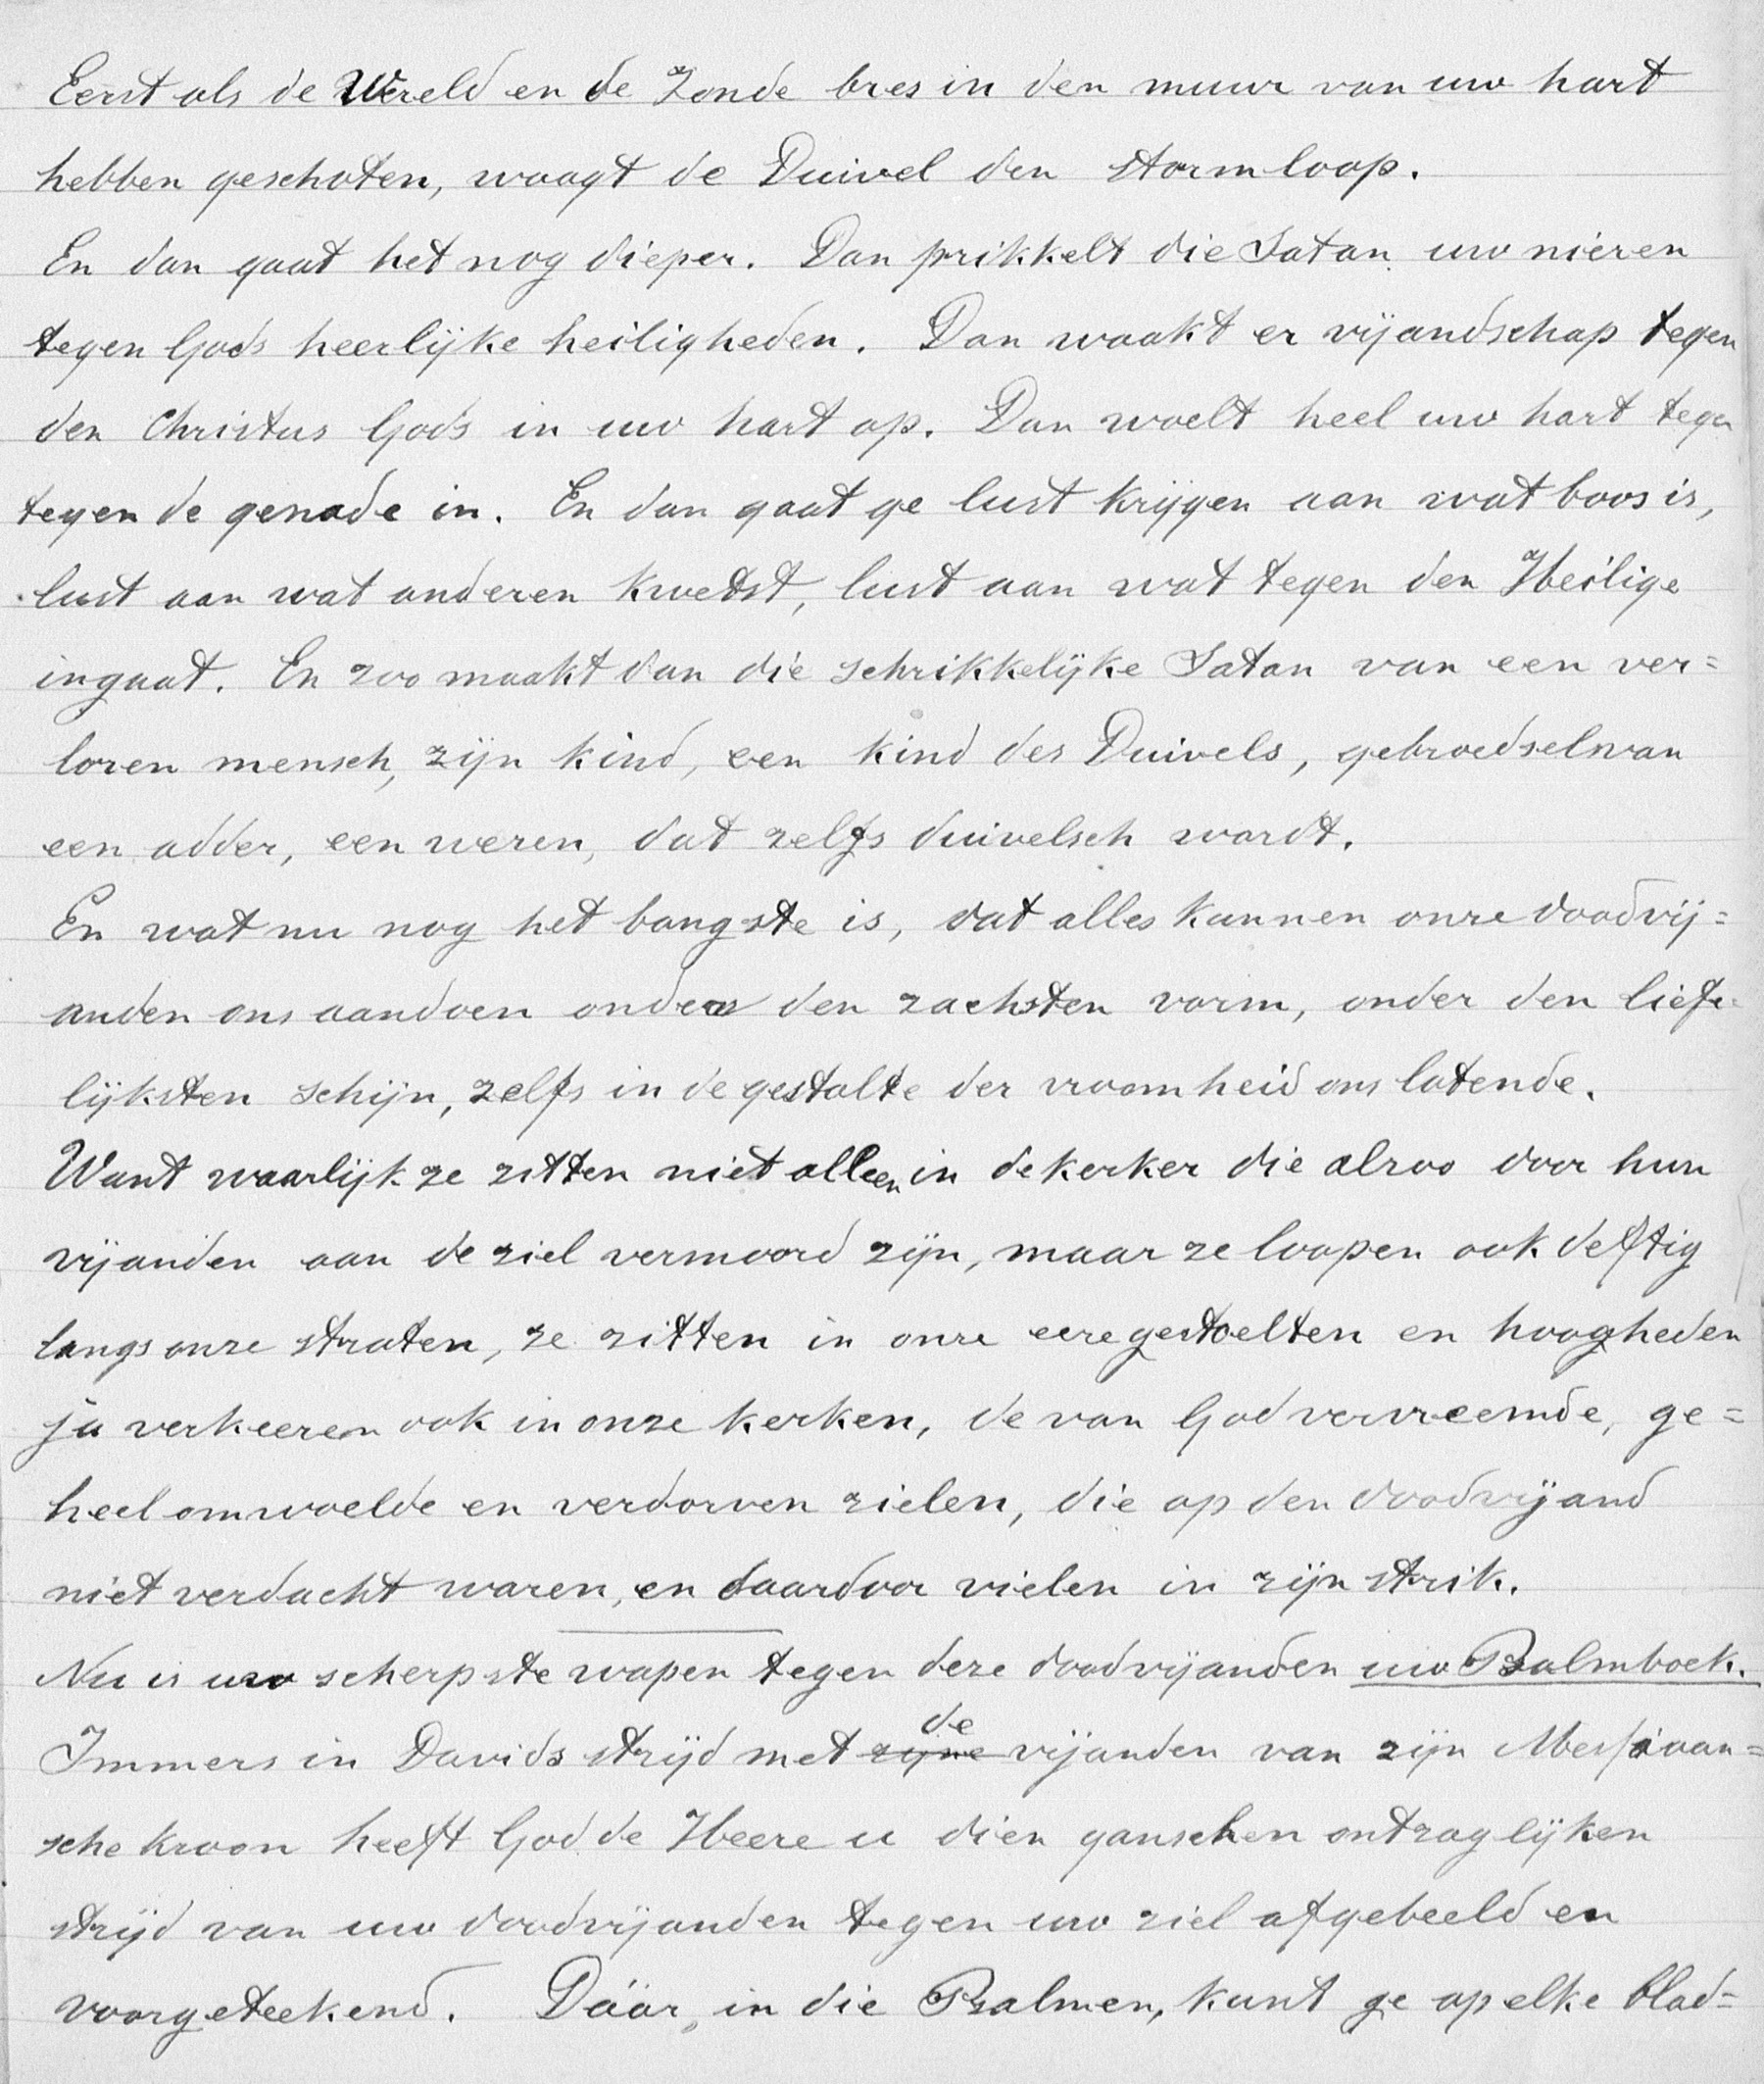 Eerst als de Wereld en de Zonde bres in den muur van uw hart
hebben geschoten, waagt de Duivel den stormloop.
En dan gaat het nog dieper. Dan prikkelt die Satan uw nieren
tegen Gods heerlijke heiligheden. Dan waakt er vijandschap tegen
den Christus Gods in uw hart op. Dan woelt heel uw hart tegen
tegen de genade in. En dan gaat ge lust krijgen aan wat boos is,
lust aan wat anderen kwetst, lust aan wat tegen den Heilige
ingaat. En zoo maakt dan die schrikkelijke Satan van een ver=
loren mensch, zijn kind, een kind des Duivels, gebroedsel van
een adder, een wezen, dat zelfs duivelsch wordt.
En wat nu nog het bangste is, dat alles kunnen onze doodvij=
anden ons aandoen onder den zachsten vorm, onder den liefe=
lijksten schijn, zelfs in de gestalte der vroomheid ons latende.
Want waarlijk ze zitten niet alleen in de kerker die alzoo door hun
vijanden aan de ziel vermoord zijn, maar ze loopen ook deftig
langs onze straten, ze zitten in onze eeregestoelten en hoogheden
ja verkeeren ook in onze kerken, de van God vervreemde, ge=
heel omwoelde en verdorven zielen, die op den doodvijand
niet verdacht waren, en daardoor vielen in zijn strik.
Nu is uw scherpste wapen tegen deze doodvijanden uw Psalmboek.
Immers in Davids strijd met zijne de vijanden van zijn Messiaan=
sche kroon heeft God de Heere u dien ganschen ontzaglijken
strijd van uw doodvijanden tegen uw ziel afgebeeld en
voorgeteekend. Dáár, in die Psalmen, kunt ge op elke blad=